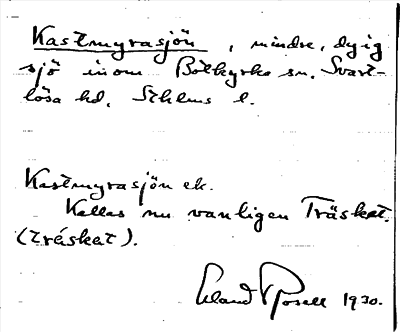 Kastmyrasjön, mindre, dyig
sjö inom Botkyrka sn. Svart-
lösa hd, Sthlms l.
Kastmyrasjön ek.
Kallas nu vanligen Träsket.
(tráskət).
Erland Rosell 1930.